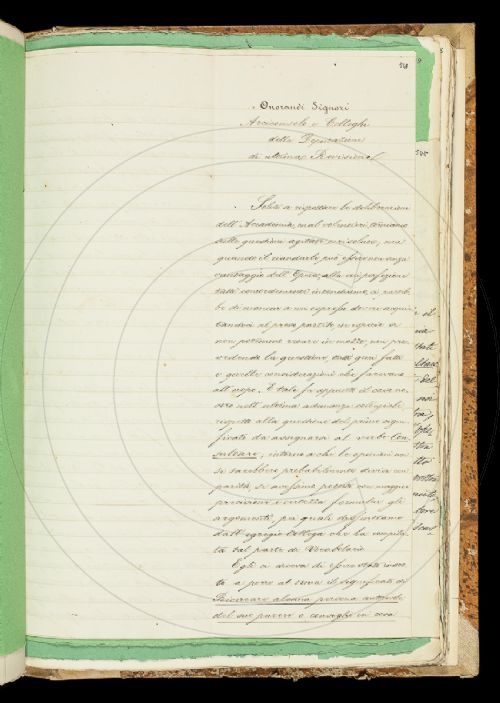 518
Onorandi Signori
Arciconsolo e Colleghi
della Deputazione
di ultima Revisione
Soliti a rispettare le deliberazioni
dell'Accademia, mal volentieri torniamo
sulle questioni agitate e risolute, ma
quando il riandarle può essere non senza
vantaggio dell'Opera, alla cui perfezione
tutti concordemente intendiamo, ci parreb-
be di mancare a un espresso dovere acquie-
tandoci al preso partito, in specie se
non potemmo recare in mezzo, non pre-
vedendo la questione,
e quelle considerazioni che facevano
all'uopo. E tale fu appunto il caso no-
stro nell'ultima adunanza collegiale,
rispetto alla questione del primo signi-
ficato da assegnarsi al verbo Con-
sultare, intorno a che le opinioni non
si sarebbero probabilmente divise
se avessimo potuto con maggior
precisione e certezza formular gli
argomenti, pei quali dissentivamo
dall'egregio Collega che ha compila-
ta tal parte di Vocabolario.
Egli ci diceva di essere stato mosso
a porre al verso il significato di
Ricercare alcuna persona autorevole
del suo parere o consiglio in cosa
545